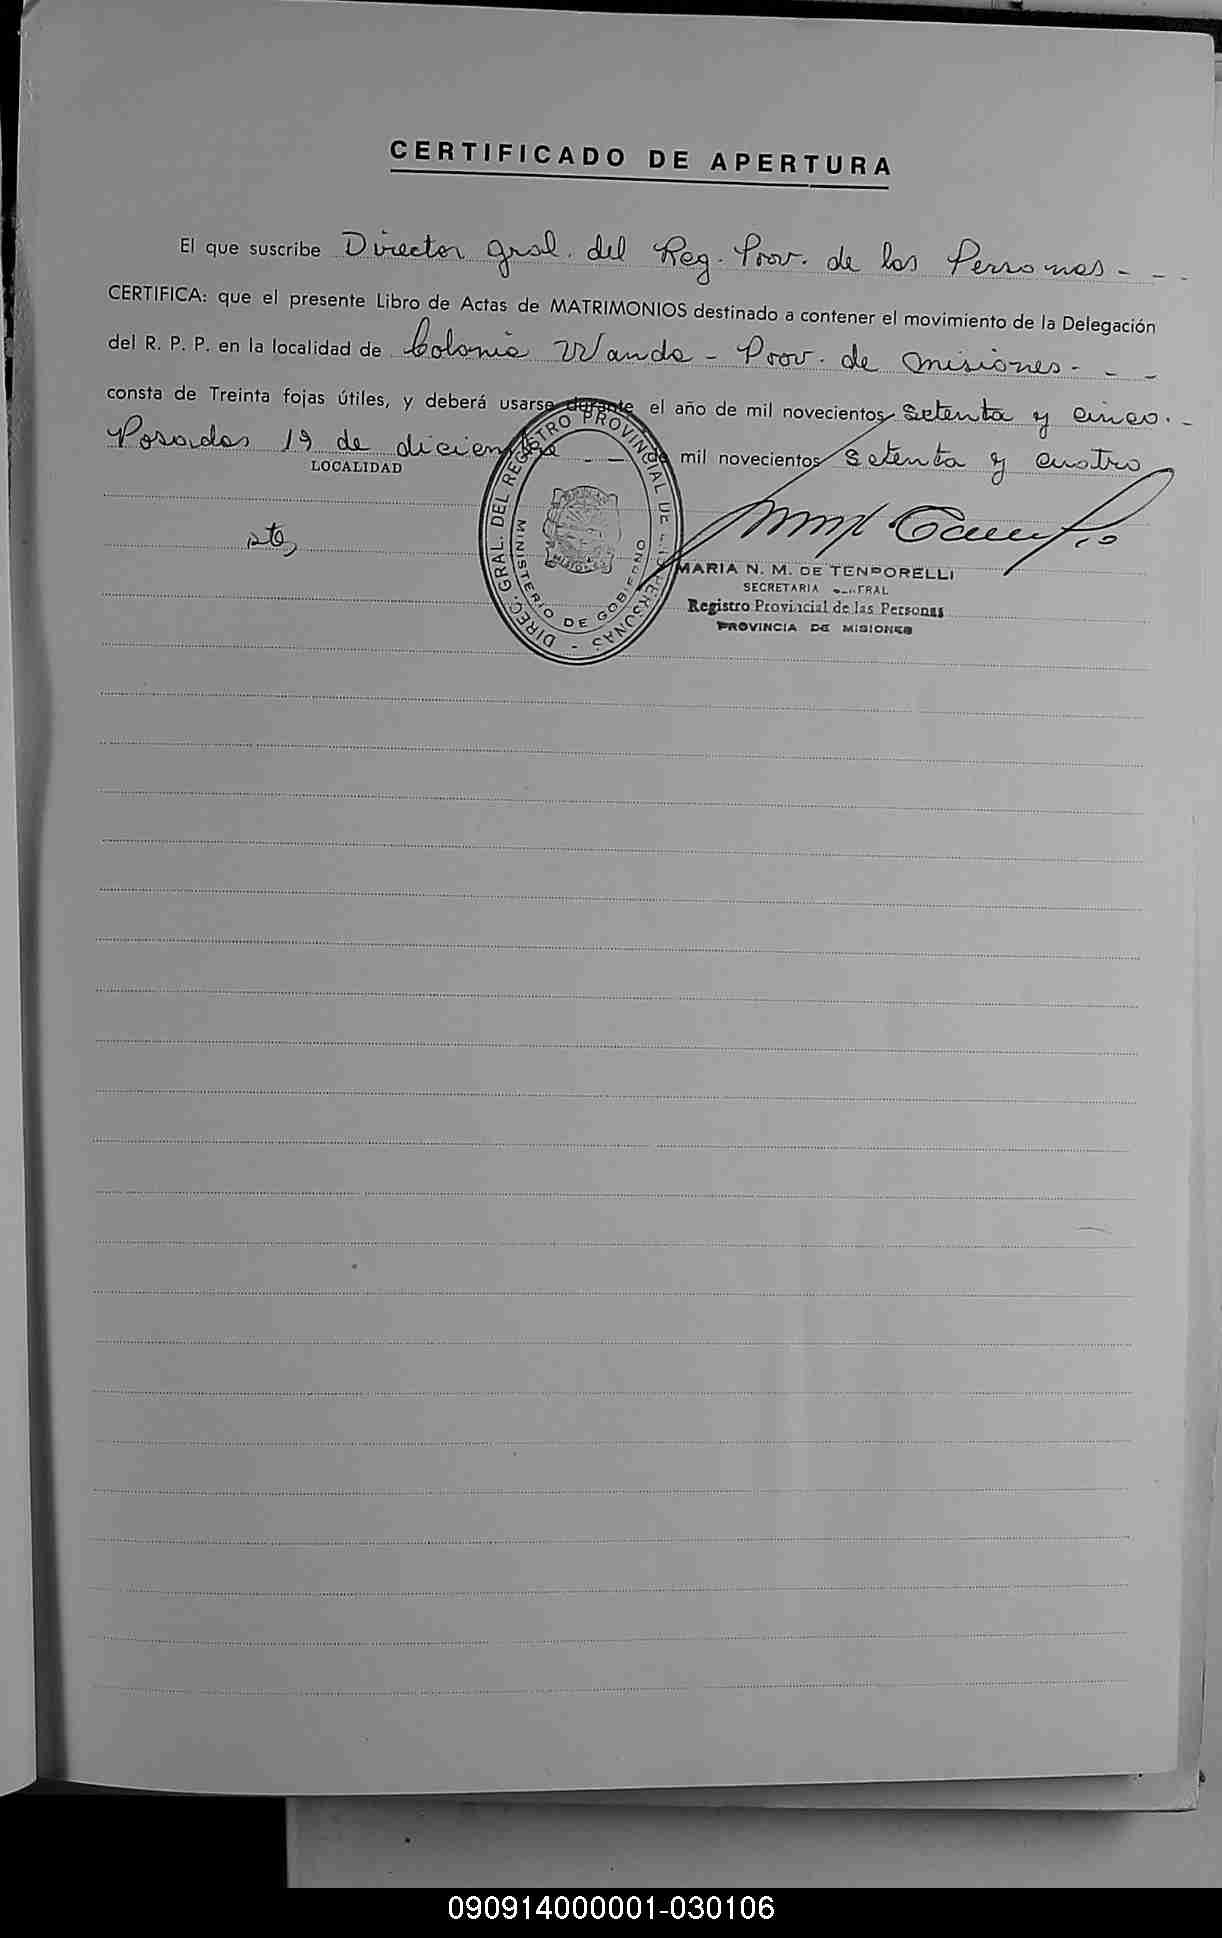 CERTIFICADO DE APERTURA
El que suscribe Director Gral. del Reg. Prov. de las Personas - - -
CERTIFICA: que el presente Libro de Actas de MATRIMONIOS destinado a contener el movimiento de la Delegación
del R. P. P. en la localidad de Colonia Wanda - Prov. de Misiones - - -
consta de Treinta fojas útiles, y deberá usarse durante el año de mil novecientos setenta y cinco. -
Posadas 19 de diciembre - - de mil novecientos setenta y cuatro
LOCALIDAD
DIREC. GRAL. DEL REGISTRO PROVINCIAL DE PERSONAS -
MINISTERIO DE GOBIERNO
MISIONES
MARIA N. M. DE TENPORELLI
SECRETARIA GENERAL
Registro Provincial de las Personas
PROVINCIA DE MISIONES
090914000001-030106